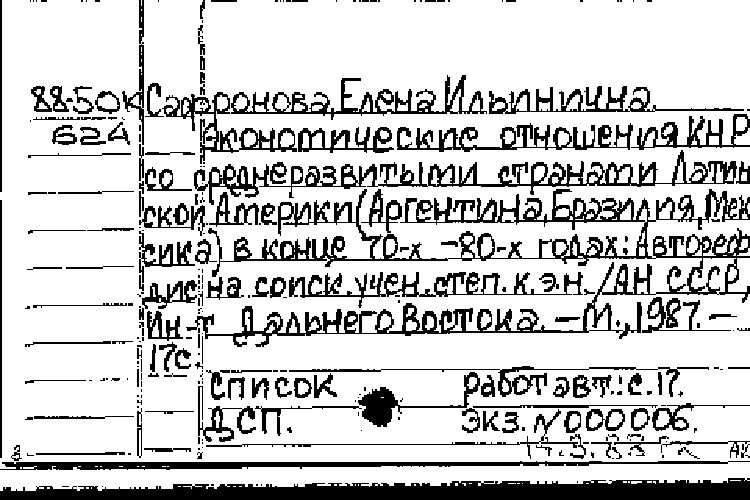 88-50к Сафронова, Елена Ильинична.
624 Экономические отношения КНР
со среднеразвитыми странами Латин
ской Америки (Аргентина, Бразилия, Мек
сика) в конце 70-х -80-х годах: Автореф
дис на соиск. учен. степ. к. э. н. /АН СССР,
Ин-т Дальнего Востока. – М., 1987. –
17с.
Список работ авт.: с. 17.
ДСП. Экз. N 000006.